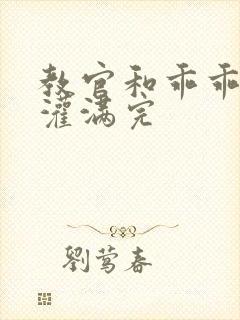 教官和乖乖
灌满完
劉莺春